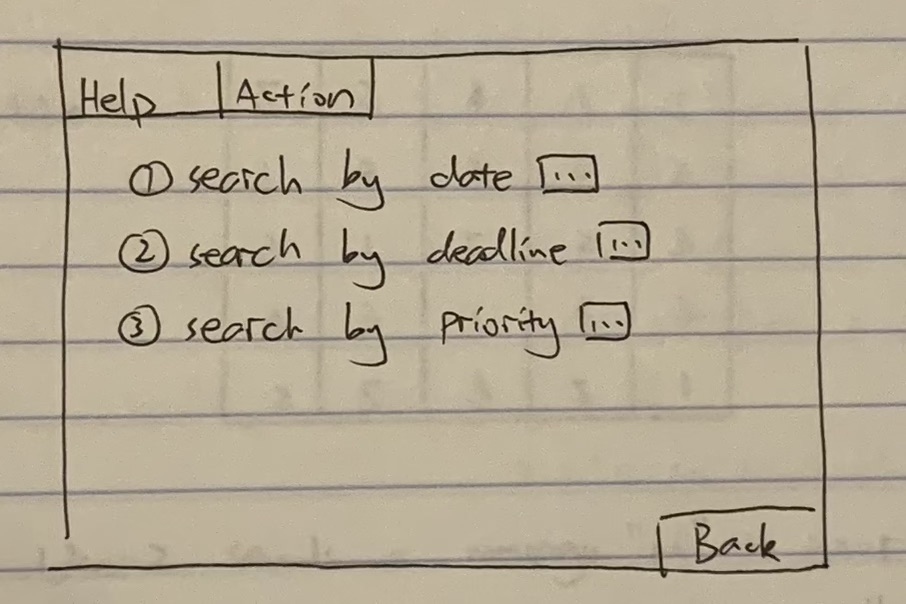 Help Action
① search by date ...
② search by deadline ...
③ search by priority ...
Back